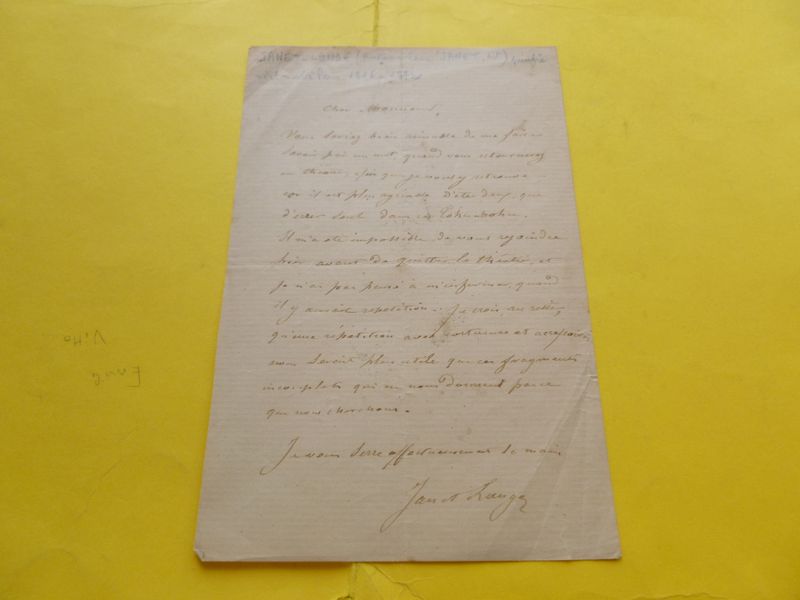 Cher Monsieur,
Vous seriez bien aimable de me faire
savoir par un mot, quand vous retournerez
au théâtre, afin que je vous y retrouve
car il est plus agréable d'être deux, que
d'errer seul dans ce Tohu bohu.
Il m'a été impossible de vous rejoindre
hier avant de quitter le théâtre, et
je n'ai pas pensé à m'informer, quand
il y aurait répétition. Je crois, au reste,
qu'une répétition avec costumes et accessoires
nous serait plus utile que ces fragments
incomplets qui ne nous donnent pas ce
que nous cherchons.
Je vous serre affectueusement la main
Janet Lange